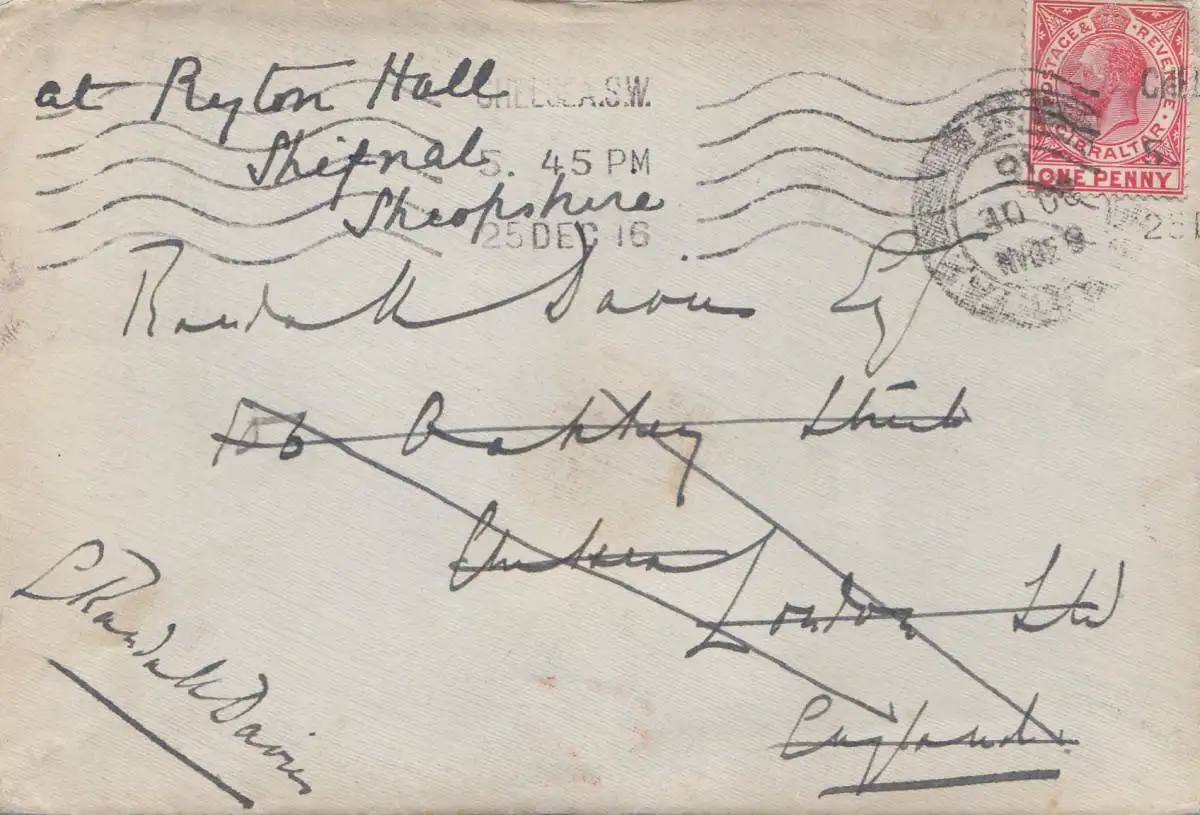 at Ryton Hall
Shifnal
Shropshire
CHELSEA.S.W.
5. 45 PM
25 DEC 16
POSTAGE & REVENUE
GIBRALTAR
ONE PENNY
Randall Davies Esq
106 Oakley Street
Chelsea
London SW
England
Randall Davies